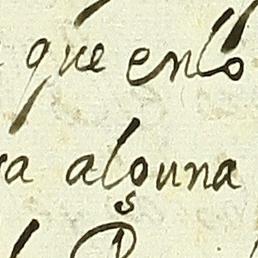 que enlo
a alguna